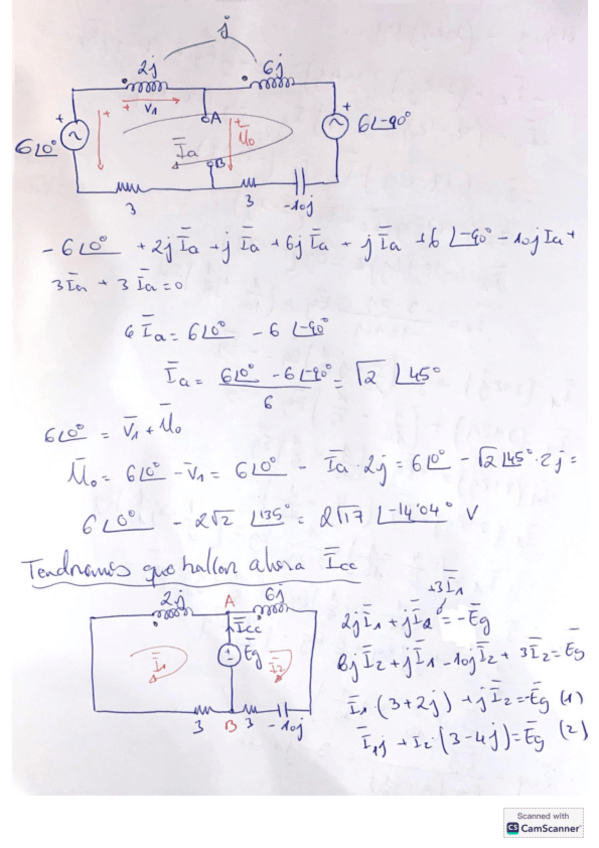 j
2j 6j
+ V₁ A + +
6∠0° Īa Ū₀ 6∠-90°
B
3 3 -10j
-6∠0° + 2j Īa + j Īa + 6j Īa + j Īa + 6∠-90° - 10j Īa +
3 Īa + 3 Īa = 0
6 Īa = 6∠0° - 6∠-90°
Īa = (6∠0° - 6∠-90°)/6 = √2 ∠45°
6∠0° = V̄₁ + Ū₀
Ū₀ = 6∠0° - V̄₁ = 6∠0° - Īa · 2j = 6∠0° - √2∠45° · 2j =
6∠0° - 2√2 ∠135° = 2√17 ∠-14'04° V
Tendremos que hallar ahora Īcc
2j A 6j
Īcc
Ī₁ Ēg Ī₂
3 B 3 -10j
+3Ī₁
2j Ī₁ + j Ī₂ = -Ēg
6j Ī₂ + j Ī₁ - 10j Ī₂ + 3 Ī₂ = Ēg
Ī₁ (3+2j) + j Ī₂ = -Ēg (1)
Ī₁j + Ī₂ (3-4j) = Ēg (2)
Scanned with
CS CamScanner